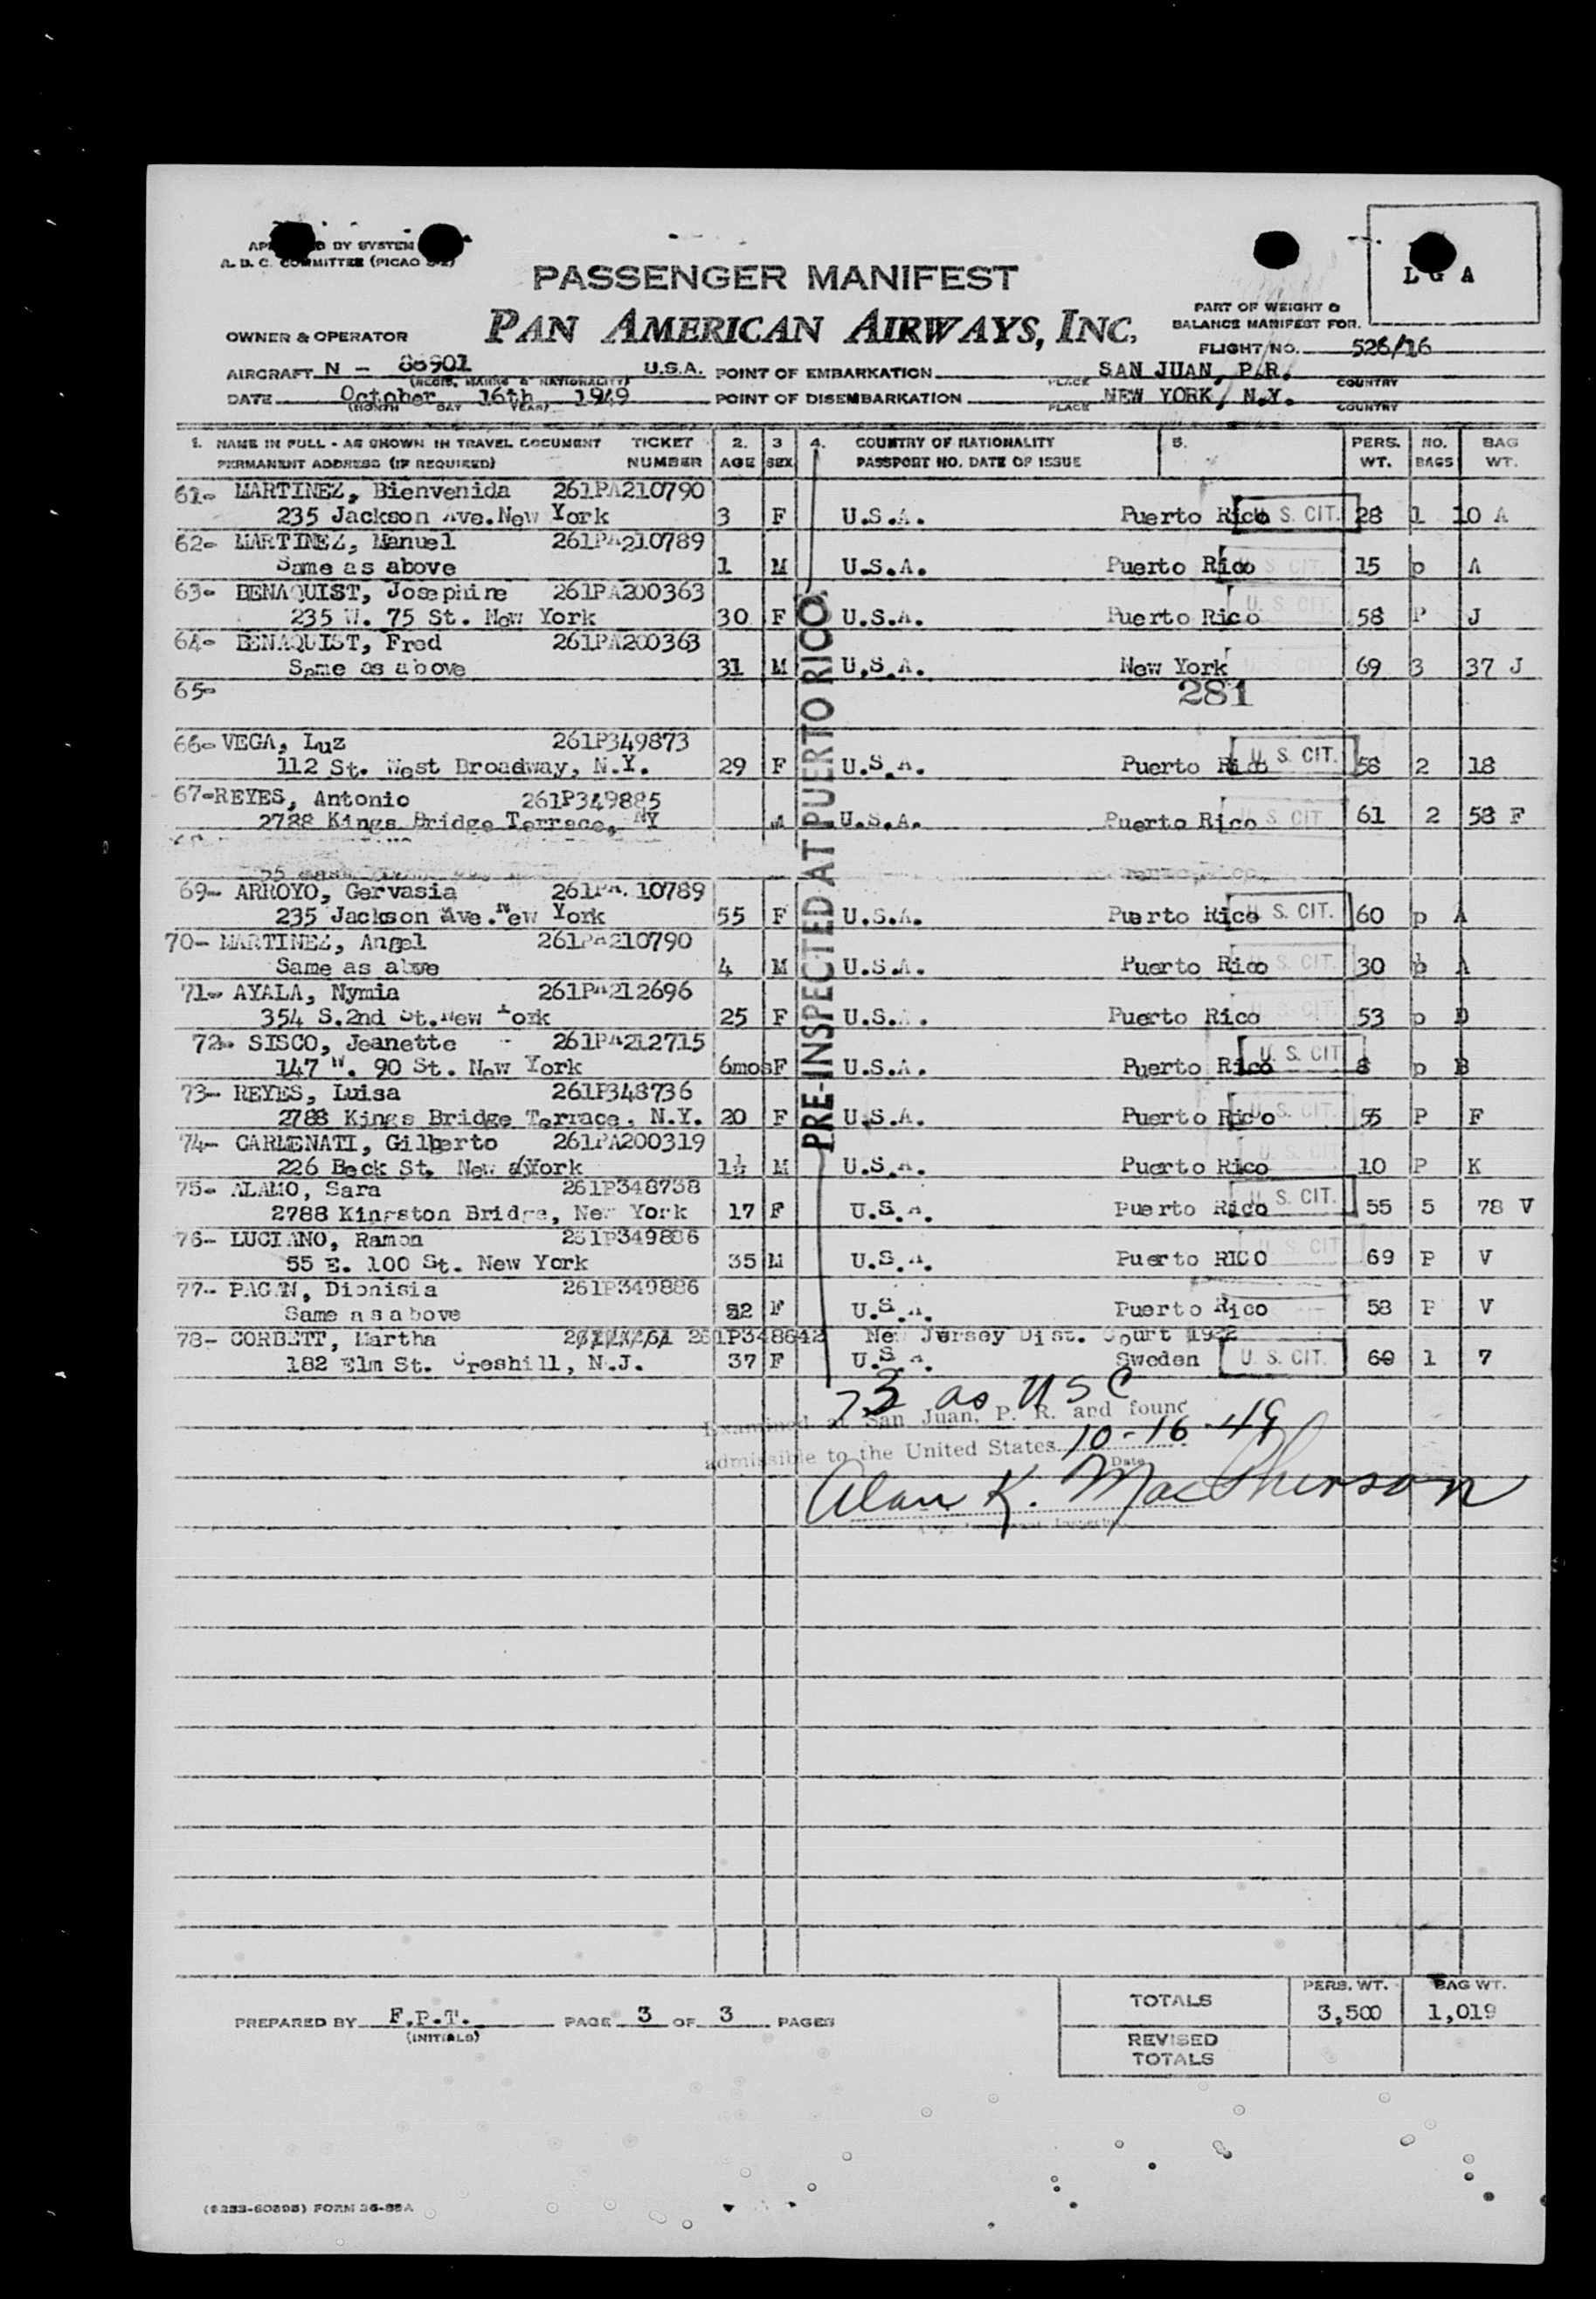 BY SYSTEM
A. D. C. COMMITTEE (PICAO
L G A
PASSENGER MANIFEST
PART OF WEIGHT &
BALANCE MANIFEST FOR.
OWNER & OPERATOR PAN AMERICAN AIRWAYS, INC.
FLIGHT NO. 526/16
AIRCRAFT N - 88901 U.S.A. POINT OF EMBARKATION SAN JUAN, P.R.
(REGIS. MARKS & NATIONALITY) PLACE COUNTRY
DATE October 16th 1949 POINT OF DISEMBARKATION NEW YORK, N.Y.
(MONTH DAY YEAR) PLACE COUNTRY
1. NAME IN FULL - AS SHOWN IN TRAVEL DOCUMENT TICKET 2. 3 4. COUNTRY OF NATIONALITY 5. PERS. NO. BAG
PERMANENT ADDRESS (IF REQUIRED) NUMBER AGE SEX PASSPORT NO. DATE OF ISSUE WT. BAGS WT.
61- MARTINEZ, Bienvenida 261PA210790
235 Jackson Ave. New York 3 F U.S.A. Puerto Rico U. S. CIT. 28 1 10 A
62- MARTINEZ, Manuel 261PA210789
Same as above 1 M U.S.A. Puerto Rico U. S. CIT. 15 p A
63- BENAQUIST, Josephine 261PA200363
235 W. 75 St. New York 30 F U.S.A. Puerto Rico U. S. CIT. 58 P J
64- BENAQUIST, Fred 261PA200363
Same as above 31 M U.S.A. New York U. S. CIT. 69 3 37 J
65- 281
66- VEGA, Luz 261P349873
112 St. West Broadway, N.Y. 29 F U.S.A. Puerto Rico U. S. CIT. 58 2 18
67- REYES, Antonio 261P349885
2788 Kings Bridge Terrace, NY M U.S.A. Puerto Rico U. S. CIT 61 2 58 F
69- ARROYO, Gervasia 261PA 10789
235 Jackson Ave. New York 55 F U.S.A. Puerto Rico U. S. CIT. 60 p A
70- MARTINEZ, Angel 261PA210790
Same as above 4 M U.S.A. Puerto Rico U. S. CIT. 30 p A
71- AYALA, Nymia 261PA212696
354 S. 2nd St. New York 25 F U.S.A. Puerto Rico U. S. CIT. 53 p D
72- SISCO, Jeanette 261PA212715
147 W. 90 St. New York 6mos F U.S.A. Puerto Rico U. S. CIT 8 p B
73- REYES, Luisa 261P348736
2788 Kings Bridge Terrace, N.Y. 20 F U.S.A. Puerto Rico U. S. CIT. 55 P F
74- CARMENATI, Gilberto 261PA200319
226 Beck St. New York 1½ M U.S.A. Puerto Rico U. S. CIT 10 P K
75- ALAMO, Sara 261P348738
2788 Kingston Bridge, New York 17 F U.S.A. Puerto Rico U. S. CIT. 55 5 78 V
76- LUCIANO, Ramon 261P349886
55 E. 100 St. New York 35 M U.S.A. Puerto RICO U. S. CIT 69 P V
77- PAGAN, Dionisia 261P349886
Same as above 52 F U.S.A. Puerto Rico 58 P V
78- CORBETT, Martha 261P348642 New Jersey Dist. Court 1922
182 Elm St. Creshill, N.J. 37 F U.S.A. Sweden U. S. CIT. 60 1 7
PRE-INSPECTED AT PUERTO RICO
73 as USC
Examined at San Juan, P. R. and found
admissible to the United States 10-16-49
Date
Alan K. MacPherson
TOTALS PERS. WT. 3,500 BAG WT. 1,019
REVISED
TOTALS
PREPARED BY F.P.T. PAGE 3 OF 3 PAGES
(INITIALS)